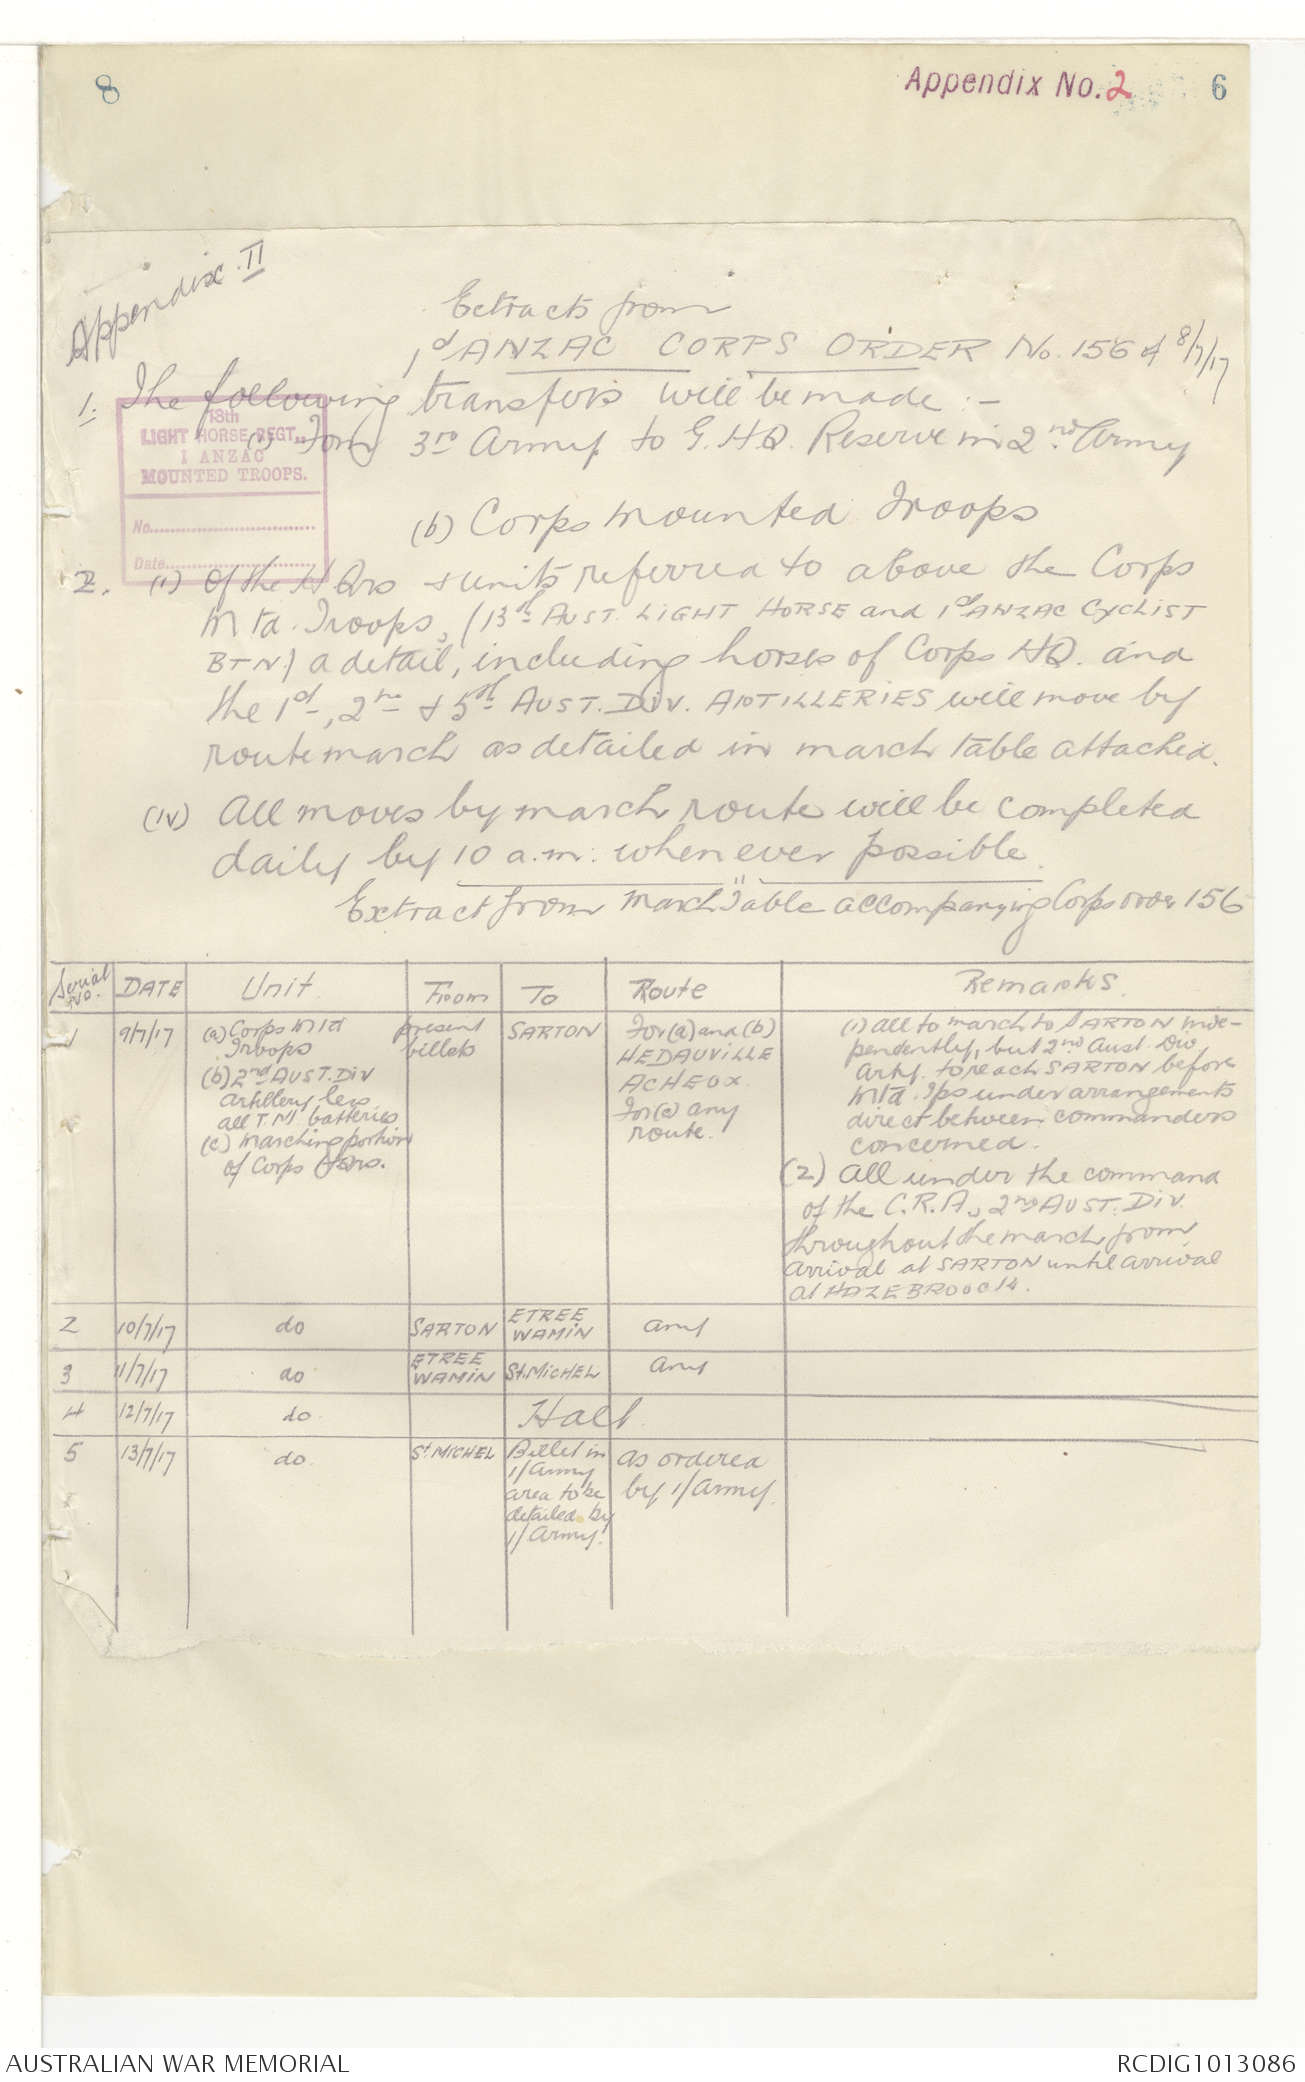 8
Appendix No. 2
6
Appendix II
Extracts from
1st ANZAC CORPS ORDER No. 156 of 8/7/17
1. The following transfers will be made :-
13th
LIGHT HORSE REGT.,
I ANZAC
MOUNTED TROOPS.
No.
Date
(i) From 3rd Army to G.H.Q. Reserve in 2nd Army
(b) Corps Mounted Troops
2. (i) Of the H Qrs & units referred to above the Corps
Mtd. Troops, (13th AUST. LIGHT HORSE and 1st ANZAC CYCLIST
BTN.) a detail, including horses of Corps HQ. and
the 1st, 2nd & 5th AUST. DIV. ARTILLERIES will move by
route march as detailed in march table attached.
(iv) All moves by march route will be completed
daily by 10 a.m. whenever possible.
Extract from March Table accompanying Corps order 156
Serial No. DATE Unit From To Route Remarks.
1 9/7/17 (a) Corps Mtd Troops (b) 2nd AUST. DIV Artillery less all T.M. batteries (c) Marching portion of Corps H Qrs. present billets SARTON For (a) and (b) HEDAUVILLE ACHEUX. For (c) any route.
(1) All to march to SARTON inde-
pendently, but 2nd Aust. Div
Arty. to reach SARTON before
Mtd. Tps under arrangements
direct between commanders
concerned.
(2) All under the command
of the C.R.A., 2nd AUST. DIV.
throughout the march from
arrival at SARTON until arrival
at HAZEBROUCK.
2 10/7/17 do SARTON ETREE WAMIN any
3 11/7/17 do ETREE WAMIN St. MICHEL any
4 12/7/17 do. Halt.
5 13/7/17 do. St MICHEL Billet in 1/Army area to be detailed by 1/Army. as ordered by 1/Army.
AUSTRALIAN WAR MEMORIAL
RCDIG1013086